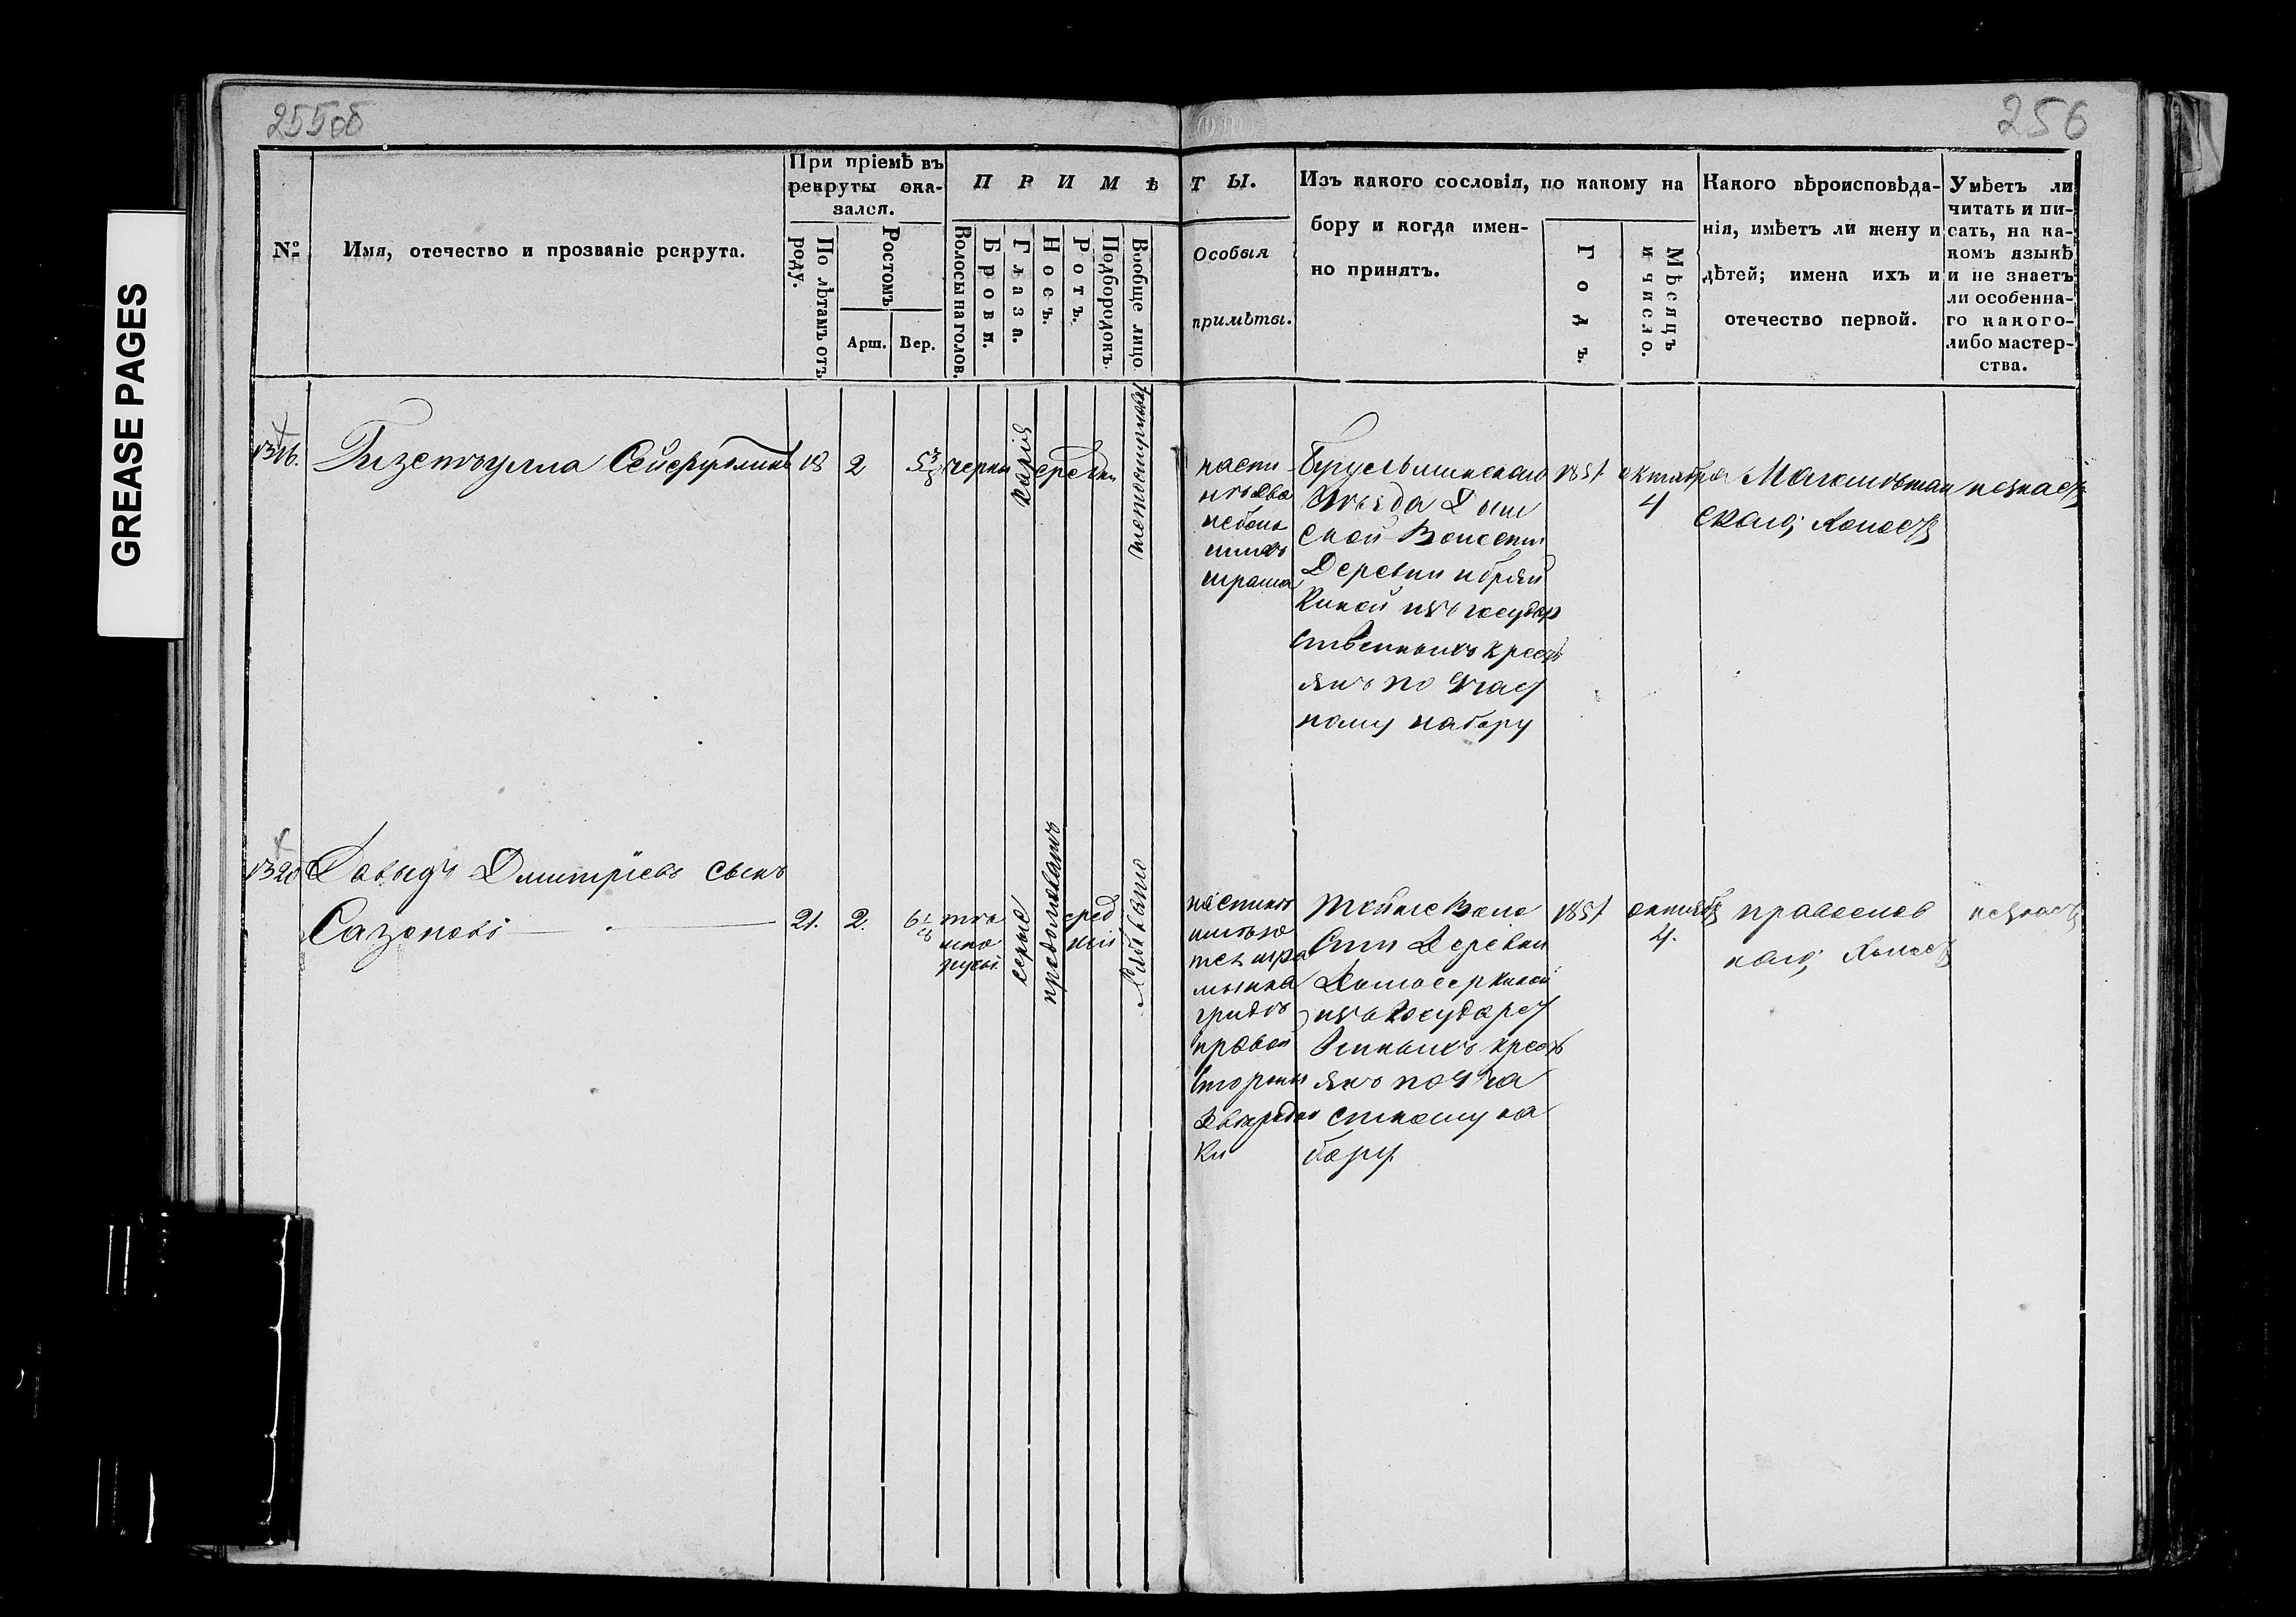 255об
256
GREASE PAGES
№
Имя, отечество и прозваніе рекрута.
При пріемѣ въ
рекруты ока-
зался.
По лѣтамъ отъ
роду.
Ростомъ
Арш.
Вер.
ПРИМѢ
ТЫ.
Волосы на голов.
Брови.
Глаза.
Носъ.
Ротъ.
Подбородокъ.
Вообще лицо.
Особыя
примѣты.
Изъ какого сословія, по какому на
бору и когда имен-
но принятъ.
Годъ.
Мѣсяцъ
и число.
Какого вѣроисповѣда-
нія, имѣетъ ли жену и
дѣтей; имена ихъ и
отечество первой.
Умѣетъ ли
читать и пи-
сать, на ка-
комъ языкѣ
и не знаетъ
ли особенна-
го какого-
либо мастер-
ства.
Гизетулла Сейфулинъ
18
2
5 3/8
черны
карія
средни
на спи
нѣ два
неболь
шихъ
шрама
уѣзда
ской Волости
Деревни
киной изъ государ
ственныхъ кресть
янъ по Част
ному набору
1857
октября
4
Магометан
скаго; холостъ
незнаетъ
1320
Давыдъ Дмитріевъ сынъ
Сазоновъ
21.
2.
6 1/8
тем
но
русы
серые
продолговатъ
сред
ній
на спинѣ
правой
стороны
ки
тойже Воло
сти Деревни
изъ Государст
венныхъ кресть
янъ по Ча
стному на
бору
1857
октября
4.
православ
наго; холостъ
незнаетъ